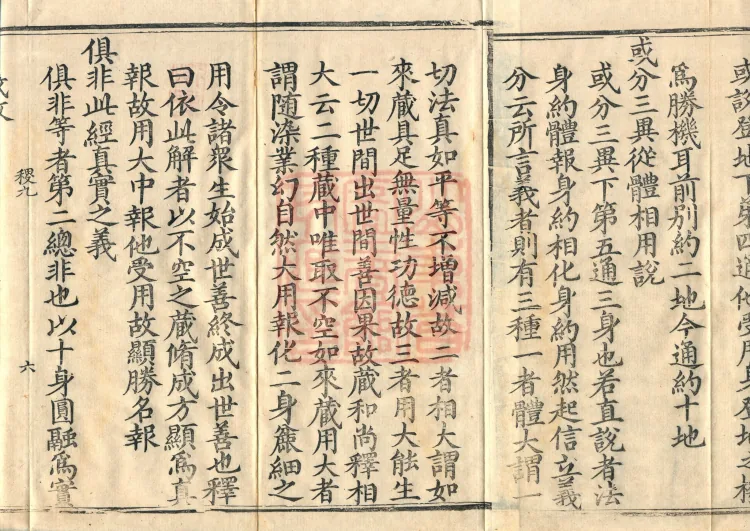 或說登地下第四通他受用身登地之機
爲勝機耳前别約二地今通約十地
或分三異從體相用說
或分三異下第五通三身也若直說者法
身約體報身約相化身約用然起信立義
分云所言義者則有三種一者體大謂一
切法真如平等不增減故二者相大謂如
來蔵具足無量性功德故三者用大能生
一切世間出世間善因果故蔵和尚釋相
大云二種蔵中唯取不空如來蔵用大者
謂随染業幻自然大用報化二身麁細之
用令諸衆生始成世善終成出世善也釋
曰依此解者以不空之蔵脩成方顯爲真
報故用大中報他受用故顯勝名報
俱非此經真實之義
俱非等者第二總非也以十身圓融爲實
稷九
六